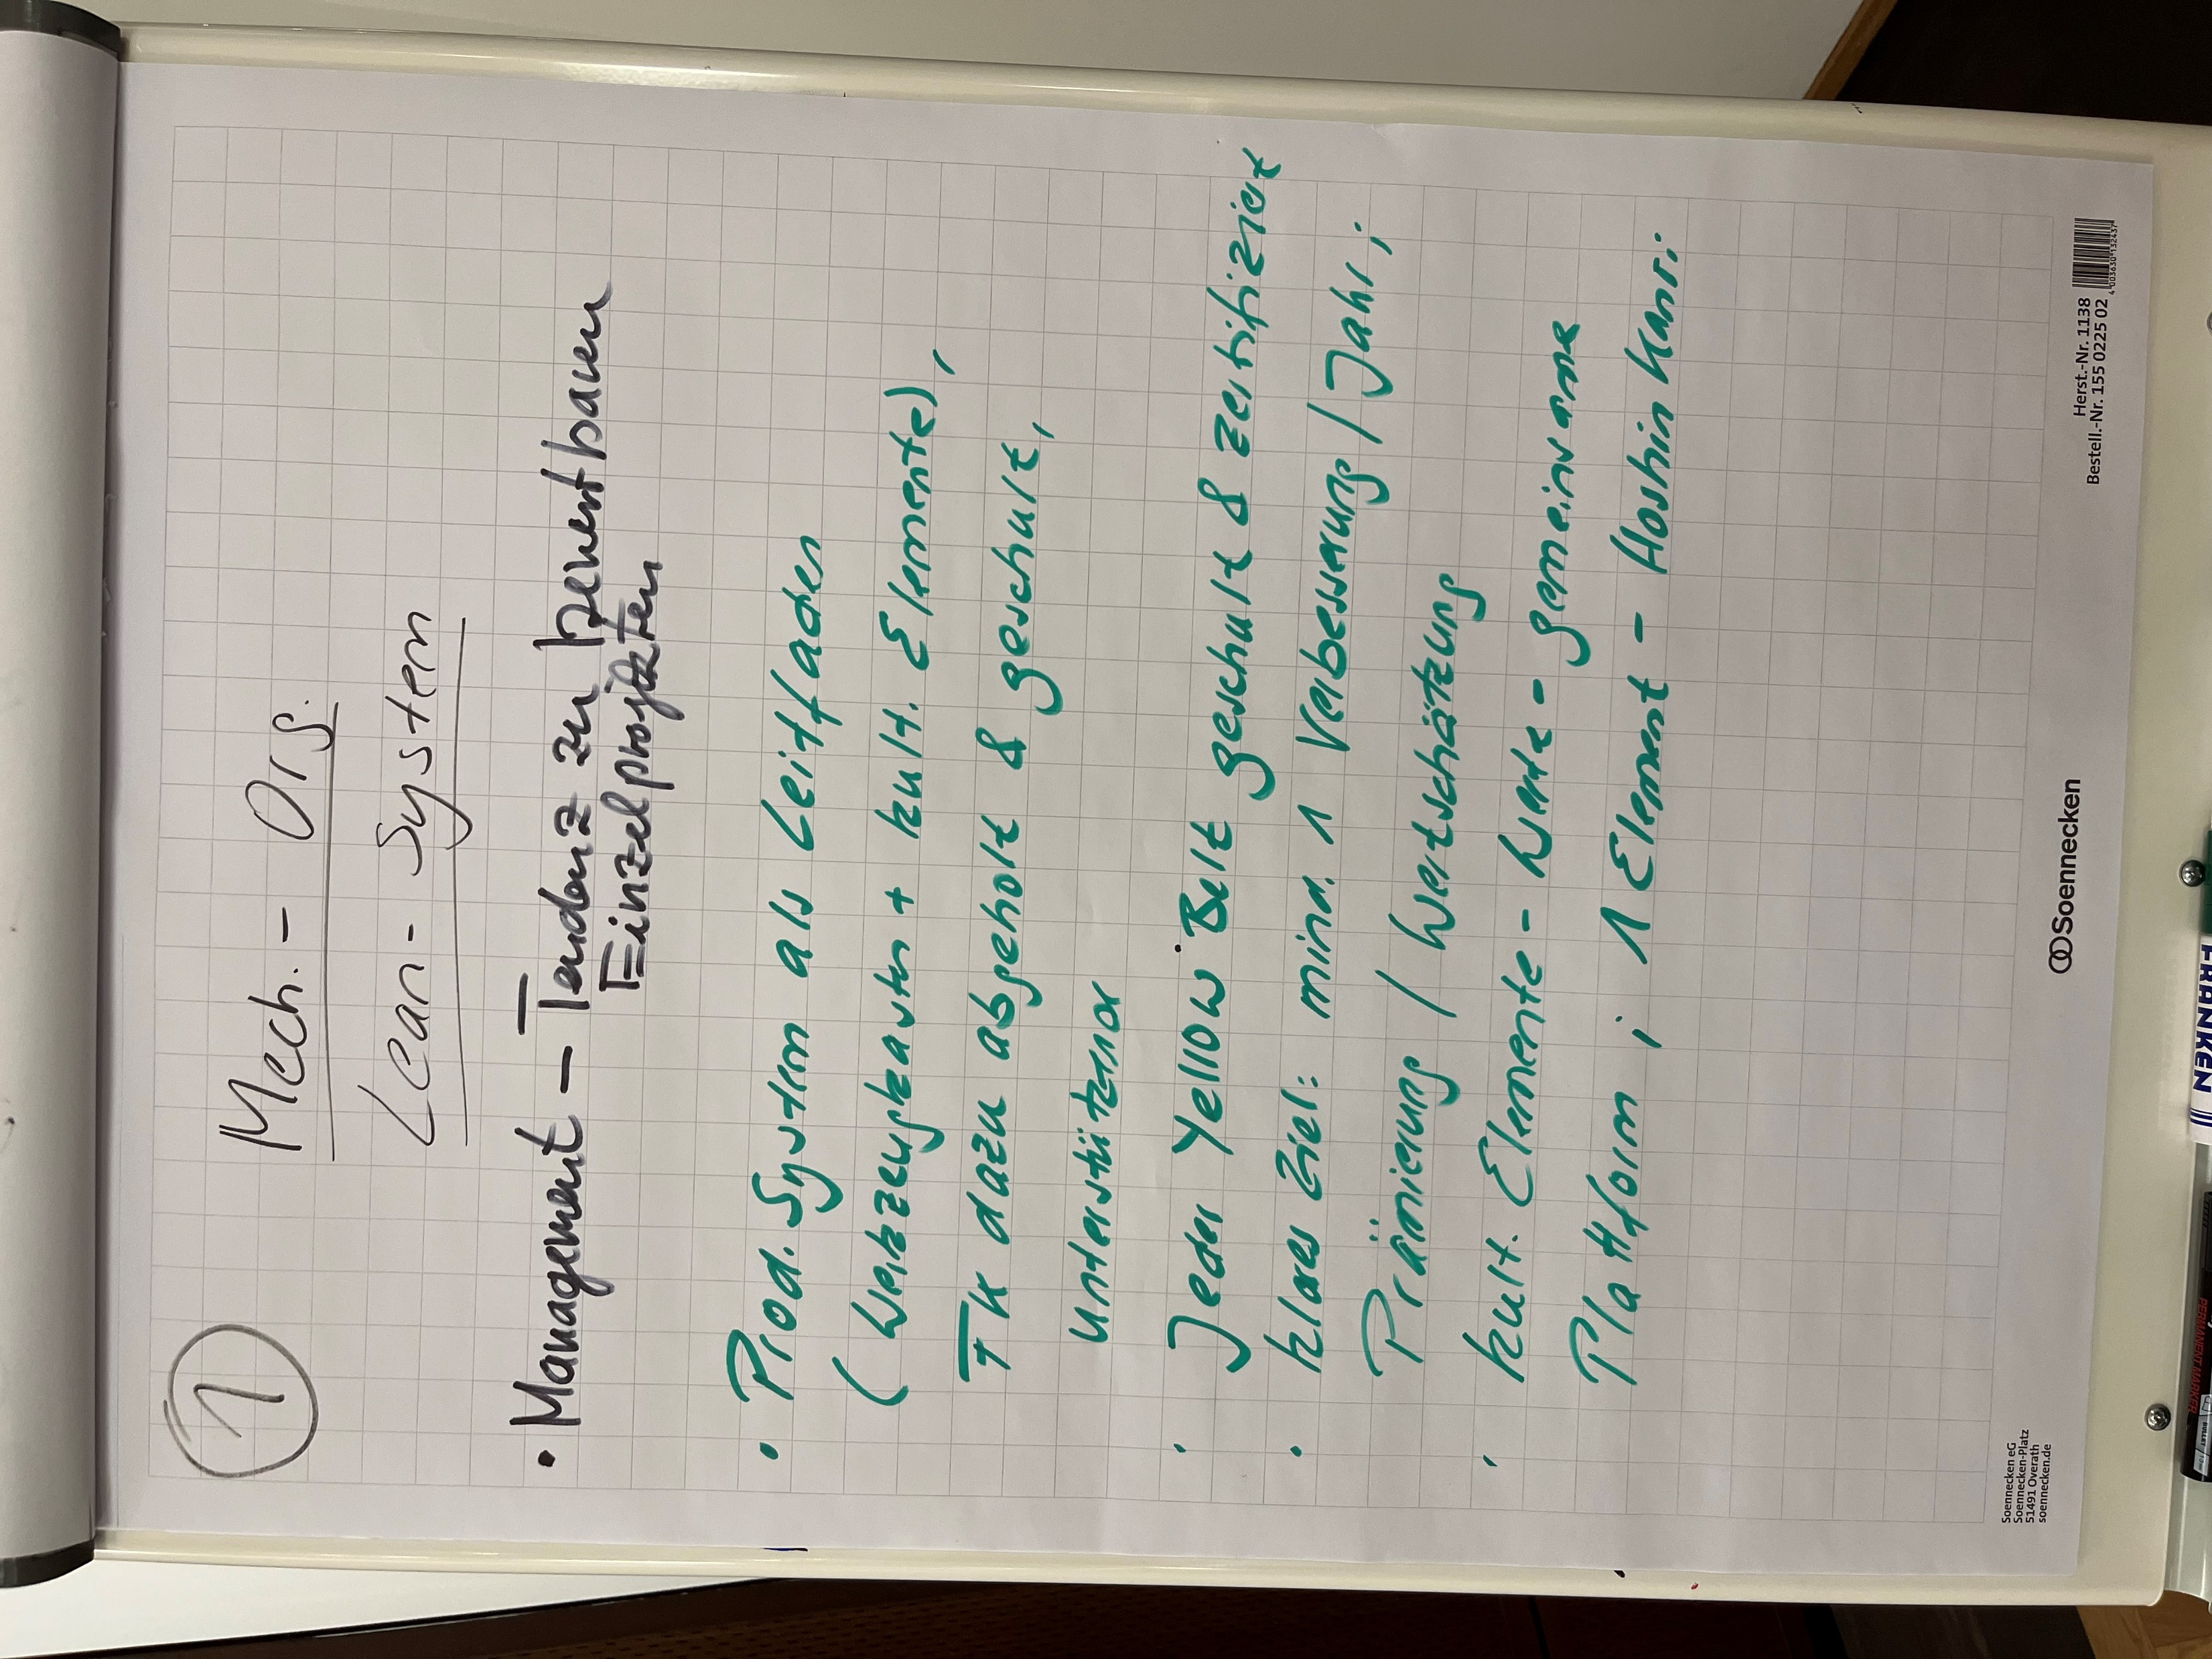 1
Mech. - Org.
Lean - System
• Management - Tendenz zu bewertbaren
Einzelprojekten
• Prod. System als Leitfaden
(Werkzeugkasten + kult. Elemente),
FK dazu abgeholt & geschult,
Unterstützend
• Jeder Yellow Belt geschult & zertifiziert
• klares Ziel: mind. 1 Verbesserung / Jahr;
Prämierung / Wertschätzung
• kult. Elemente - Werte - gemeinsame
Plattform ; 1 Element - Hoshin Kanri
Soennecken eG
Soennecken-Platz
51491 Overath
soennecken.de
Soennecken
Herst.-Nr. 1138
Bestell.-Nr. 155 0225 02
4 003630 132437
FRANKEN
PERMANENT MARKER